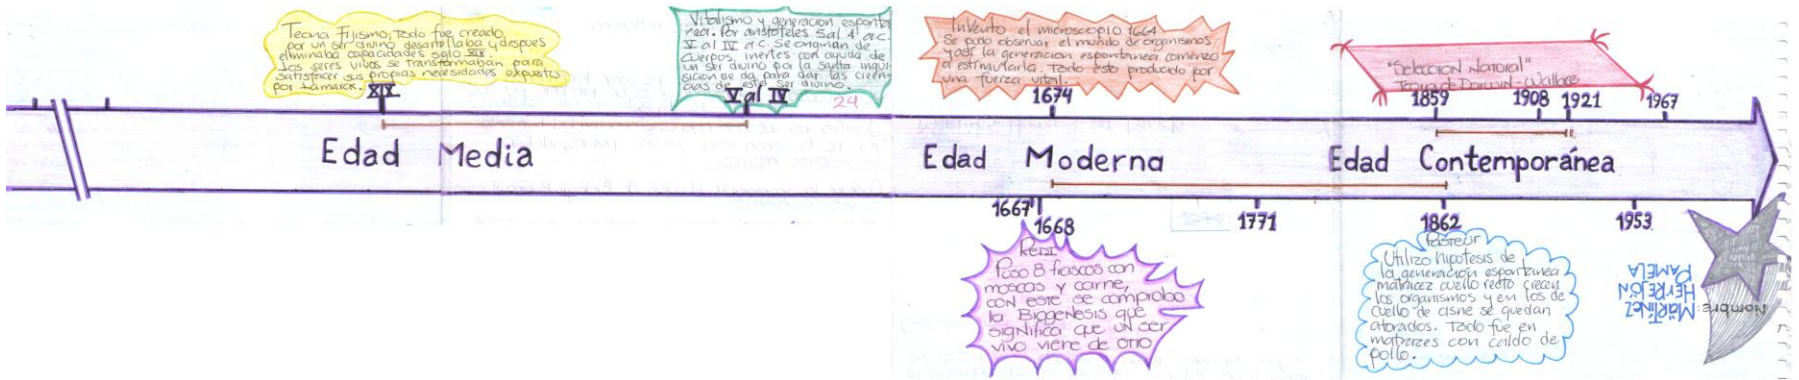 Teoria fijismo: Todo fue creado
por un ser divino desarrollaba y despues
eliminaba capacidades siglo XIX
los seres vivos se transformaban para
satisfacer sus propias necesidades expuesto
por Lamarck.
XIX
Vitalismo y generacion esponta
nea. Por aristoteles Sal 4 a.c.
V al IV a.c. Se originan de
cuerpos inertes con ayuda de
un ser divino por la santa inqui
sicion se da para dar las creen
cias de este ser divino.
24
V al IV
Invento el microscopio 1664
Se pudo observar el mundo de organismos
y ase la generacion espontanea comenzo
a estimularla. Todo esto producido por
una fuerza vital.
1674
"Seleccion Natural"
Teoria de Darwin - Wallace
1859
1908
1921
1967
Edad Media
Edad Moderna
Edad Contemporánea
1667
1668
1771
1862
1953
Redi
Puso 8 frascos con
moscas y carne,
con este se comprobo
la Biogenesis que
significa que un ser
vivo viene de otro
Pasteur
Utilizo hipotesis de
la generacion espontanea
matracez cuello recto crecen
los organismos y en los de
cuello de cisne se quedan
atorados. Todo fue en
matraces con caldo de
pollo.
Nombre:
Martínez
Herrejón
Pamela